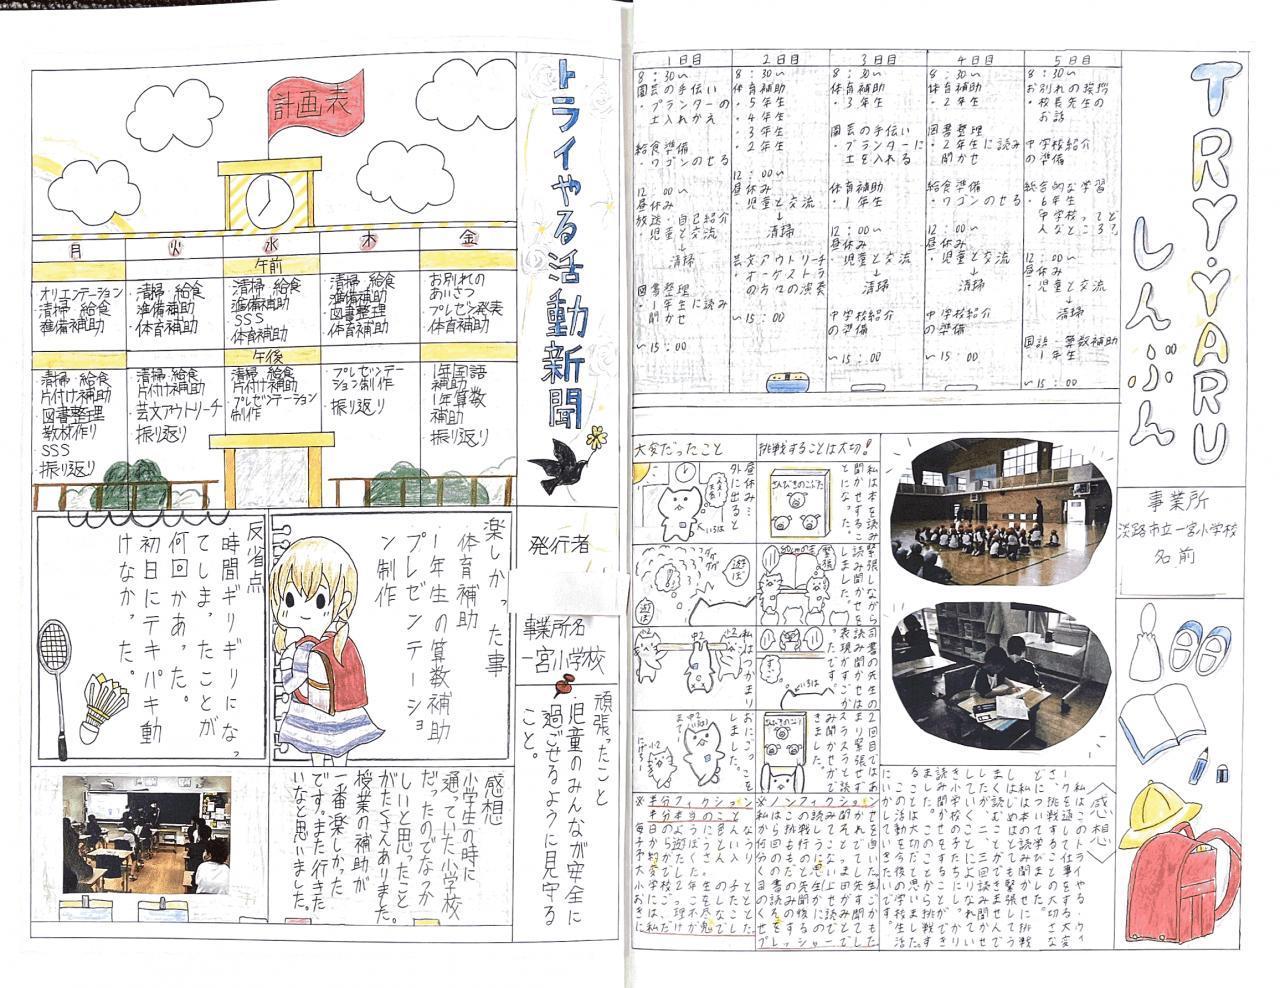 計画表
トライやる活動新聞
月 火 水 木 金
午前
オリエンテーション
清掃 給食
準備補助
清掃 給食
準備補助
体育補助
清掃 給食
準備補助
SSS
体育補助
清掃 給食
準備補助
図書整理
体育補助
お別れの
あいさつ
プレゼン発表
体育補助
午後
清掃・給食
片付け補助
図書整理
教材作り
SSS
振り返り
清掃・給食
片付け補助
芸文アウトリーチ
振り返り
清掃・給食
片付け補助
プレゼンテーション
制作
プレゼンテー
ション制作
振り返り
1年国語
補助
1年算数
補助
振り返り
発行者
事業所名
一宮小学校
反省点
時間ギリギリになっ
てしまったことが
何回かあった。
初日にテキパキ動
けなかった。
楽しかった事
体育補助
1年生の算数補助
プレゼンテーショ
ン制作
頑張ったこと
・児童のみんなが安全に
過ごせるように見守る
こと。
感想
小学生の時に
通っていた小学校
だったのでなつか
しいと思ったこと
がたくさんありました。
授業の補助が
一番楽しかった
です。また行きた
いなと思いました。
TRY・YARU
しんぶん
1日目
8:30〜
園芸の手伝い
・プランターの
土入れかえ
給食準備
・ワゴンのせる
12:00〜
昼休み
放送・自己紹介
・児童と交流
↓
清掃
図書整理
・1年生に読み
聞かせ
〜15:00
2日目
8:30〜
体育補助
・5年生
・4年生
・3年生
・2年生
12:00〜
昼休み
・児童と交流
↓
清掃
芸文アウトリーチ
・オーケストラ
の方々の演奏
〜15:00
3日目
8:30〜
体育補助
・3年生
園芸の手伝い
・プランターに
土を入れる
体育補助
・1年生
12:00〜
昼休み
・児童と交流
↓
清掃
中学校紹介
の準備
〜15:00
4日目
8:30〜
体育補助
・2年生
図書整理
・2年生に読み
聞かせ
給食準備
・ワゴンのせる
12:00〜
昼休み
・児童と交流
↓
清掃
中学校紹介
の準備
〜15:00
5日目
8:30〜
お別れの挨拶
・校長先生の
お話
中学校紹介
の準備
総合的な学習
・6年生
中学校ってど
んなところ?
12:00〜
昼休み
・児童と交流
↓
清掃
国語・算数補助
・1年生
〜15:00
事業所
淡路市立一宮小学校
名前
大変だったこと
昼休み…
外に出ると
私はつかまり
おにごっこを
しました。
挑戦することは大切!
さんびきのこぶた
私は本を読み
聞かせすること
になった。
※半分フィクション
半分本当のこと
毎日のように色んな
子から遊ぼうという
予約がたくさん入り
大変でした。
小学校2年生の子と
おにごっこをしたと
きは、理不尽なこと
に私だけが鬼でした。
※ノンフィクション
私はこの読み聞かせ
から挑戦してそれを
何回も行うことで自
分のものになってい
くのだと思いました。
司書の先生(上田先生)
の読み聞かせがすご
くその後に読み聞か
せをするのでとても
プレッシャーでした
感想